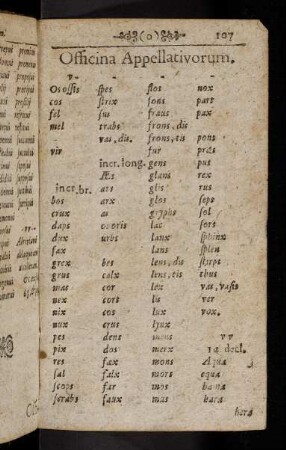 (0) 107
Officina Appellativorum.
Os ossis spes flos nox
cos strix fons pars
fel sus fraus pax
mel trabs frons, dis
vas, dis. frons, tis pons
vir fur præs
incr. long. gens pus
Æs glans rex
incr. br. ars glis rus
bos arx glos seps
crux as gryphs sol
daps os oris lac sors
dux urbs lanx sphinx
fax laus splen
grex bes lens, dis stirps
grus calx lens, tis thus
mas cor lex vas, vasis
nex cors lis ver
nix cos lux vox.
nux crus lynx
pes dens mens
pix dos merx 1æ decl.
res fæx mons Aqua
sal falx mors equa
scops far mos
scrobs faux mus hara
hera